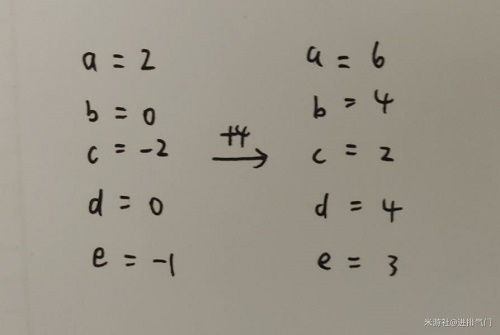 a = 2
b = 0
c = -2
d = 0
e = -1
+4
a = 6
b = 4
c = 2
d = 4
e = 3
米游社@进排气门